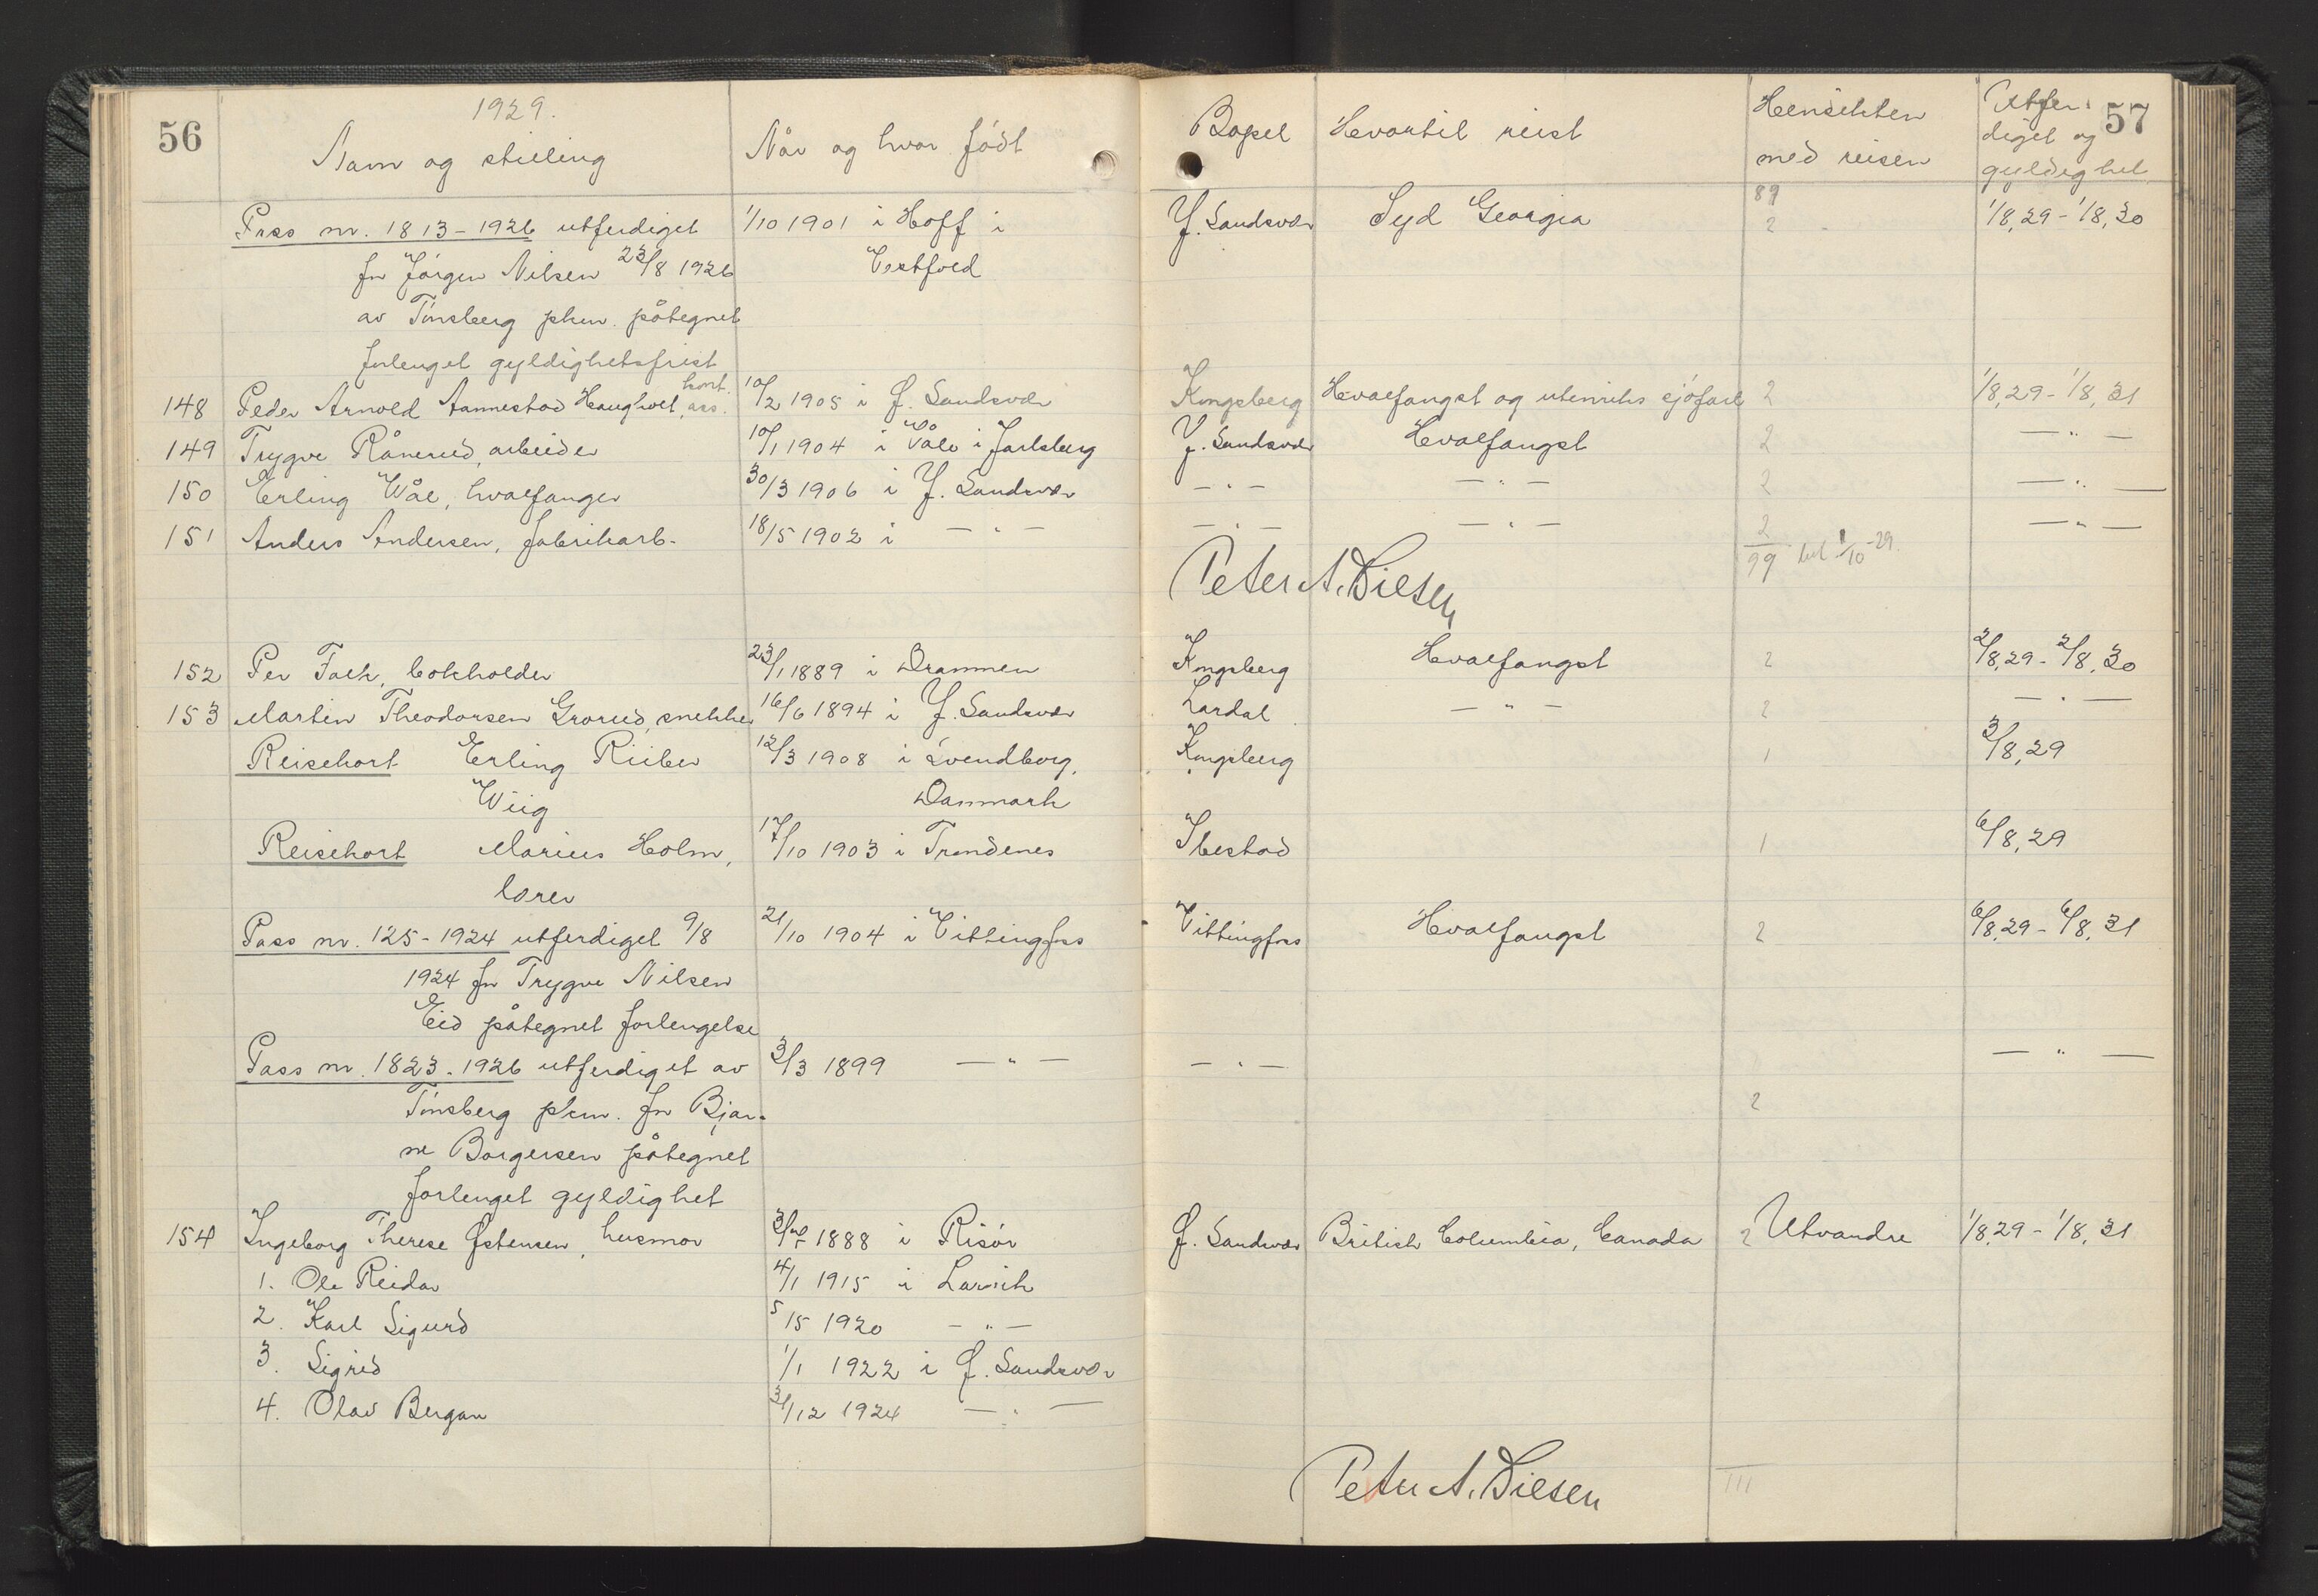 56
1929.
Navn og stilling
Når og hvor født
Bopel
Hvortil reist
Hensikten
med reisen
Utfer-
diget og
gyldighet
57
89
Pass nr. 1813-1926 utferdiget 1/10 1901 i Hoff i Y. Sandsvær Syd Georgia 2 1/8,29 - 1/8,30
for Jørgen Nilsen 23/8 1926 Vestfold
av Tønsberg pkm. påtegnet
forlenget gyldighetsfrist
148 Peder Arnold Aannestad Haugholt, kont. ass. 10/2 1905 i Ø. Sandsvær Kongsberg Hvalfangst og utenriks sjøfart 2 1/8,29 - 1/8,31
149 Trygve Rånerud, arbeider 10/1 1904 i Våle i Jarlsberg Y. Sandsvær Hvalfangst 2 — " —
150 Erling Wåle, hvalfanger 30/3 1906 i Y. Sandsvær — " — — " — 2 — " —
151 Anders Andersen, fabrikarb. 18/5 1902 i — " — — " — — " — 2 — " —
99 bet 1/10-29.
Peter A. Diesen
152 Per Falk, bokholder 23/1 1889 i Drammen Kongsberg Hvalfangst 2 2/8,29 - 2/8,30
153 Martin Theodorsen Grorud, snekker 16/6 1894 i Y. Sandsvær Lardal — " — 2 — " —
Reisekort Erling Riiber 12/3 1908 i Svendborg, Kongsberg 1 3/8,29
Wiig Danmark
Reisekort Marius Holm, 17/10 1903 i Trondenes Ibestad 1 6/8,29
lærer
Pass nr. 125-1924 utferdiget 9/8 21/10 1904 i Vittingfoss Vittingfoss Hvalfangst 2 6/8,29 - 6/8,31
1924 for Trygve Nilsen
Eid påtegnet forlengelse
Pass nr. 1823-1926 utferdiget av 3/3 1899 — " — — " — — " —
Tønsberg pkm. for Bjar- 2
ne Borgersen påtegnet
forlenget gyldighet
154 Ingeborg Therese Østensen, husmor 1888 i Risør Ø. Sandsvær British Columbia, Canada 2 Utvandre 1/8,29 - 1/8,31
1. Ole Reidar 4/1 1915 i Larvik
2. Karl Sigurd 5/5 1920 — " —
3. Sigrid 1/1 1922 i Ø. Sandsvær
4. Olav Bergan 31/12 1924 — " —
Peter A. Diesen
111